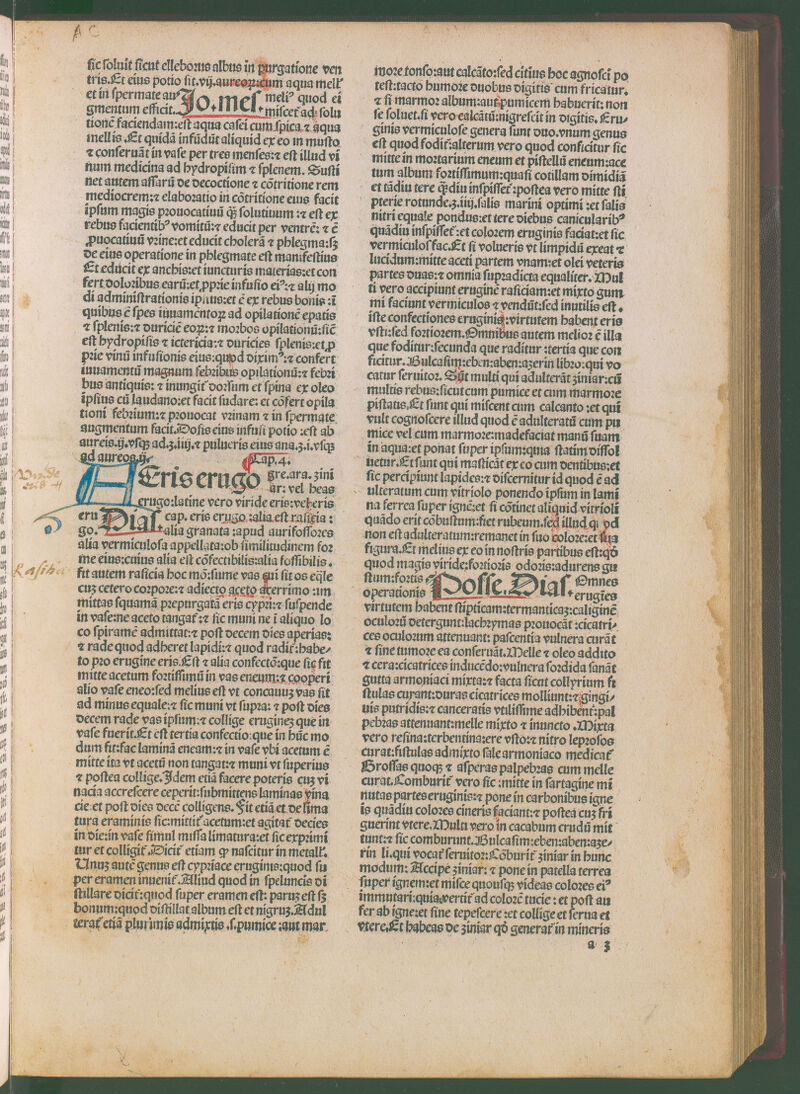 A C
sic soluit sicut elleborus albus in purgatione ven
tris. Et eius potio sit .vij. aureorꝝ: cum aqua mell'
et in spermate au⁊ Jo. mes. meliꝰ quod ei
gmentum efficit. miscet᷑ ad solu
tionē faciendam: est aqua casei cum spica, ⁊ aqua
mellis. Et quidā infūdūt aliquid ex eo in musto
⁊ conseruāt in vase per tres menses: ⁊ est illud vi
num medicina ad hydropisim ⁊ splenem. Susti
net autem assarū de decoctione ⁊ cōtritione rem
mediocrem: ⁊ elaboratio in cōtritione eius facit
ipsum magis prouocatiuū q̄ȝ solutiuum: ⁊ est ex
rebus facientibꝰ vomitū: ⁊ educit per ventrē: ⁊ ē
ꝓuocatiuū vrine: et educit cholerā ⁊ phlegma: sȝ
de eius operatione in phlegmate est manifestius
Et educit ex anchis: et iuncturis materias: et con
fert doloribus earū: et ꝓprie infusio eiꝰ: ⁊ alij mo
di administrationis ipsius: et ē ex rebus bonis: ī
quibus ē spes iuuamentoꝝ ad opilationē epatis
⁊ splenis: ⁊ duriciē eoꝝ: ⁊ morbos opilationū: sic̄
est hydropisis ⁊ ictericia: ⁊ duricies splenis: et ꝓ
prie vinū infusionis eius: quod diximꝰ: ⁊ confert
iuuamentū magnum febribus opilationū: ⁊ febri
bus antiquis: ⁊ inungit᷑ dorsum et spina ex oleo
ipsius cū laudano: et facit sudare: et cōfert opila
tioni febrium: ⁊ prouocat vrinam ⁊ in spermate
augmentum facit. Dosis eius infusi potio: est ab
aureis .ij. vsqȝ ad .ʒ.iiij. ⁊ pulueris eius ana .ʒ.i. vsqȝ
ad aureos .ij. Cap. 4.
AEris erugo gre. ara. zini
ar: vel heas
erugo: latine vero viride eris: vel eris
eru Dias. cap. eris erugo. alia est rasicia:
go. alia granata: apud aurifossores
alia vermiculosa appellata: ob similitudinem for
me eius: cuius alia est cōfectibilis: alia fossibilis.
fit autem rasicia hoc mō: sume vas qui sit os eq̄le
cuȝ cetero corpore: ⁊ adiecto aceto acerrimo: im
mittas squamā prepurgatā eris cyprii: ⁊ suspende
in vase: ne aceto tangat᷑: ⁊ sic muni ne ī aliquo lo
co spiramē admittat: ⁊ post decem dies aperias:
⁊ rade quod adheret lapidi: ⁊ quod radit᷑: habe⸗
to pro erugine eris. Est ⁊ alia confectō: que sic fit
mitte acetum fortissimū in vas eneum: ⁊ cooperi
alio vase eneo: sed melius est vt concauuȝ vas sit
ad minus equale: ⁊ sic muni vt supra: ⁊ post dies
decem rade vas ipsum: ⁊ collige erugineȝ que in
vase fuerit. Et ēst tertia confectio: que in hūc mo
dum fit: fac laminā eneam: ⁊ in vase vbi acetum ē
mitte ita vt acetū non tangat: ⁊ muni vt superius
⁊ postea collige. Idem etiā facere poteris cuȝ vi
nacia accrescere ceperit: submittens laminas vina
cie: et post dies decē colligens. Fit etiā et de lima
tura eraminis sic: mittit᷑ acetum: et agitat᷑ decies
in die: in vase simul missa limatura: et sic exprimi
tur et colligit᷑. Dicit᷑ etiam ꝙ nascitur in metall'.
Unuȝ autē genus est cypriace eruginis: quod su
per eramen inuenit᷑. Aliud quod in speluncis di
stillare dicit᷑: quod super eramen est: paruȝ est sȝ
bonum: quod distillat album est et nigruȝ. Adul
terat᷑ etiā plurimis admixtis .s. pumice: aut mar
more tonso: aut calcāto: sed citius hoc agnosci po
test: tacto humore duobus digitis cum fricatur.
⁊ si marmor album: aut pumicem habuerit: non
se soluet. si vero calcātū: nigrescit in digitis. Eru⸗
ginis vermiculose genera sunt duo. vnum genus
est quod fodit᷑: alterum vero quod conficitur sic
mitte in mortarium eneum et pistellū eneum: ace
tum album fortissimum: quasi cotillam dimidiā
et tādiu tere q̄diu inspisset᷑: postea vero mitte sti
pterie rotunde .ʒ.iiij. salis marini optimi: et salis
nitri equale pondus: et tere diebus canicularibꝰ
quādiu inspisset᷑: et colorem eruginis faciat: et sic
vermiculos fac. Et si volueris vt limpidū exeat ⁊
lucidum: mitte aceti partem vnam: et olei veteris
partes duas: ⁊ omnia supradicta equaliter. Mul
ti vero accipiunt eruginē rasiciam: et mixto gum
mi faciunt vermiculos ⁊ vendūt: sed inutilis est.
iste confectiones eruginis: virtutem habent eris
vsti: sed fortiorem. Omnibus autem melior ē illa
que foditur: secunda que raditur: tertia que con
ficitur. Bulcasim: eben: aben: azerin libro: qui vo
catur seruitor. Sūt multi qui adulterāt ziniar: cū
multis rebus: sicut cum pumice et cum marmore
pistatis. Et sunt qui miscent cum calcanto: et qui
vult cognoscere illud quod ē adulteratū cum pu
mice vel cum marmore: madefaciat manū suam
in aqua: et ponat super ipsum: quia statim dissol
uetur. Et sunt qui masticāt ex eo cum dentibus: et
sic percipiunt lapides: ⁊ discernitur id quod ē ad
ulteratum cum vitriolo ponendo ipsum in lami
na ferrea super ignē: et si cōtinet aliquid vitrioli
quādo erit cōbustum: fiet rubeum. sed illud q̇ qd
non est adulteratum: remanet in suo colore: et sua
figura. Et melius ex eo in nostris partibus est: qō
quod magis viride: fortioris odoris: adurens gu
stum: fortis Posse. Dias. Omnes
operationis erugies
virtutem habent stipticam: termanticaȝ: caliginē
oculorū detergunt: lachrymas prouocāt: cicatri⸗
ces oculorum attenuant: pascentia vulnera curāt
⁊ sine tumore ea conseruāt. Melle ⁊ oleo addito
⁊ cera: cicatrices inducēdo: vulnera sordida sanāt
gutta armoniaci mixta: ⁊ facta sicut collyrium fi
stulas curant: duras cicatrices molliunt: ⁊ gingi⸗
uis putridis: ⁊ canceratis vtilissime adhibent᷑: pal
pebras attenuant: melle mixto ⁊ inuncto. Mixta
vero resina: terbentina: ere vsto: ⁊ nitro leprosos
curat: fistulas admixto sale armoniaco medicat᷑
Grossas quoqȝ ⁊ asperas palpebras cum melle
curat. Comburit᷑ vero sic: mitte in sartagine mi
nutas partes eruginis: ⁊ pone in carbonibus igne
is quādiu colores cineris faciant: ⁊ postea cuȝ fri
guerint vtere. Multi vero in cacabum crudū mit
tunt: ⁊ sic comburunt. Bulcasim: eben: aben: aze⸗
rin li. qui vocat᷑ seruitor: Cōburit᷑ ziniar in hunc
modum: Accipe ziniar: ⁊ pone in patella terrea
super ignem: et misce quousqȝ videas colores eiꝰ
immutari: quia vertit᷑ ad colorē tucie: et post au
fer ab igne: et sine tepescere: et collige et serua et
vtere. Et habeas de ziniar qō generat᷑ in mineris
a 3
Rasitia